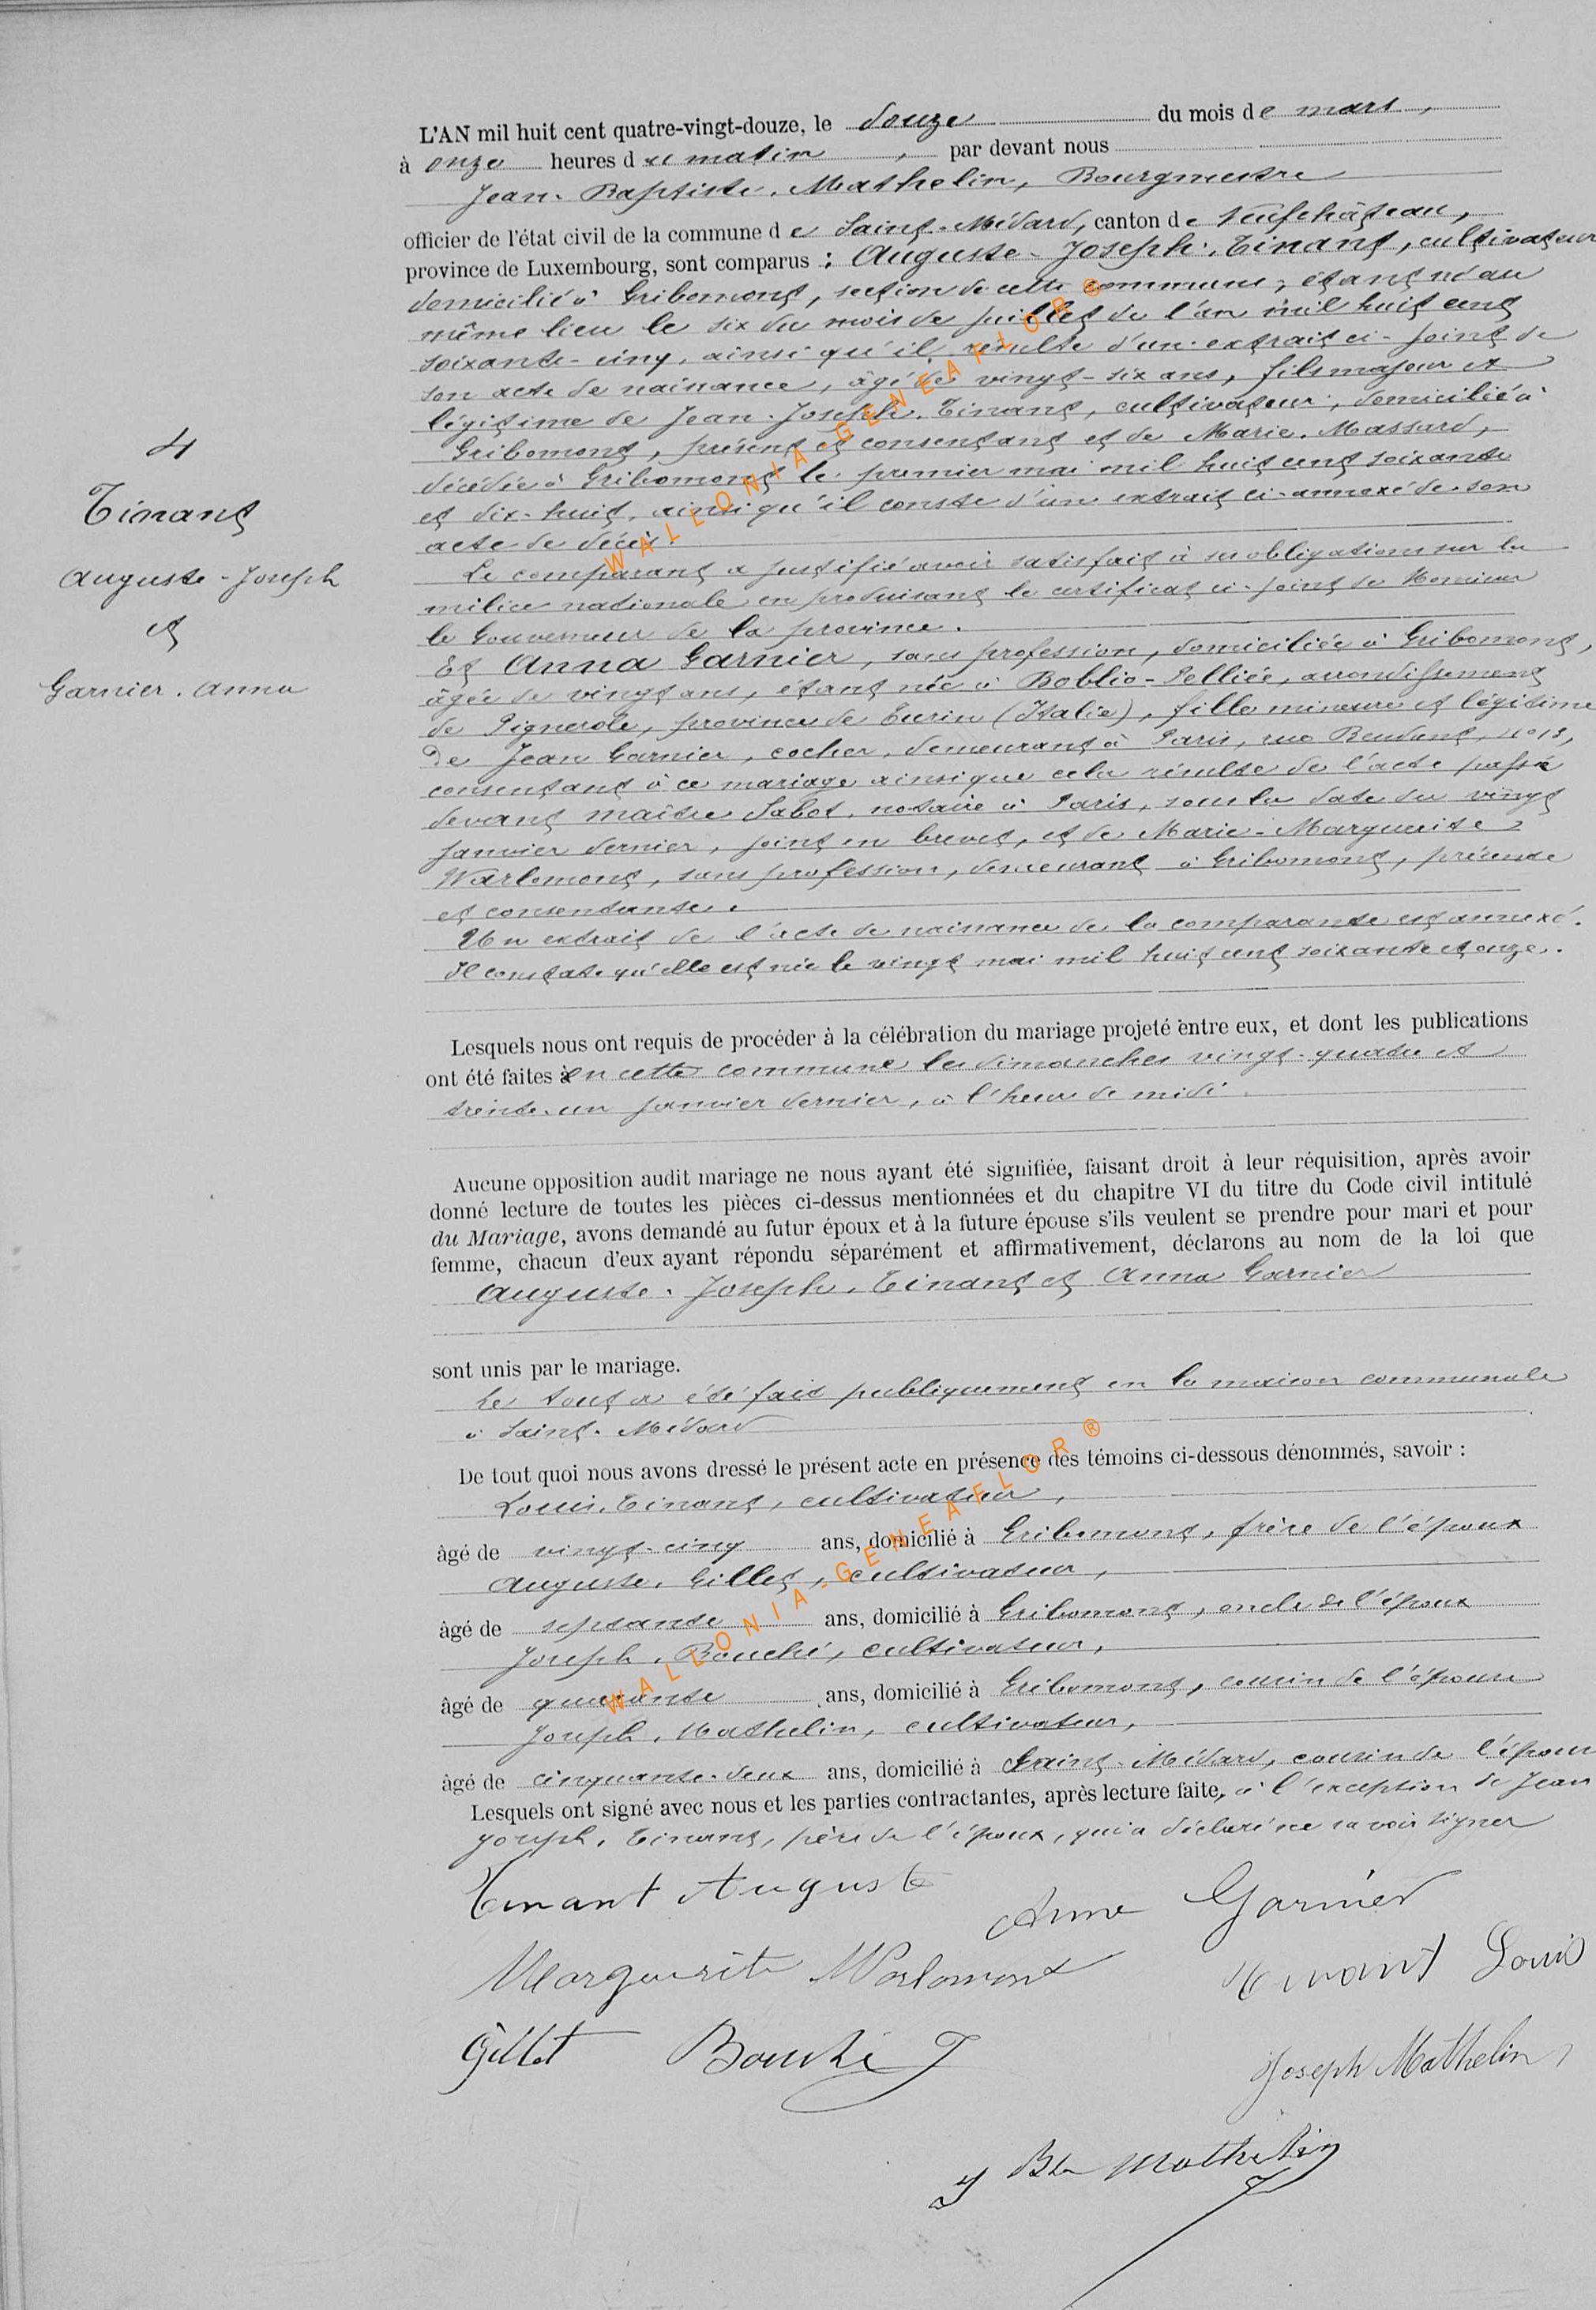 4
Tinant
Auguste-Joseph
et
Garnier. Anna
L'AN mil huit cent quatre-vingt-douze, le douze du mois de mars,
à onze heures du matin, par devant nous
Jean-Baptiste. Mathelin, Bourgmestre
officier de l'état civil de la commune de Saint-Médard, canton de Neufchâteau,
province de Luxembourg, sont comparus : Auguste-Joseph. Tinant, cultivateur
domicilié à Gribomont, section de cette commune, étant né au
même lieu le six du mois de juillet de l'an mil huit cent
soixante-cinq, ainsi qu'il résulte d'un extrait ci-joint de
son acte de naissance, âgé de vingt-six ans, fils majeur et
légitime de Jean-Joseph. Tinant, cultivateur, domicilié à
Gribomont, présent et consentant et de Marie. Massard,
décédée à Gribomont le premier mai mil huit cent soixante
et dix-huit, ainsi qu'il conste d'un extrait ci-annexé de son
acte de décès.
Le comparant a justifié avoir satisfait à ses obligations sur la
milice nationale en produisant le certificat ci-joint de Monsieur
le Gouverneur de la province.
Et Anna Garnier, sans profession, domiciliée à Gribomont,
âgée de vingt ans, étant née à Boblio-Pelliée, arrondissement
de Pignerole, province de Turin (Italie), fille mineure et légitime
De Jean Garnier, cocher, demeurant à Paris, rue Beudant, n° 13,
consentant à ce mariage ainsi que cela résulte de l'acte passé
devant maître Sabot, notaire à Paris, sous la date du vingt
janvier dernier, joint en brevet, et de Marie-Marguerite
Warlomont, sans profession, demeurant à Gribomont, présente
et consentante.
Un extrait de l'acte de naissance de la comparante est annexé.
Il constate qu'elle est née le vingt mai mil huit cent soixante et onze.
Lesquels nous ont requis de procéder à la célébration du mariage projeté entre eux, et dont les publications
ont été faites en cette commune les dimanches vingt-quatre et
trente-un janvier dernier, à l'heure de midi
Aucune opposition audit mariage ne nous ayant été signifiée, faisant droit à leur réquisition, après avoir
donné lecture de toutes les pièces ci-dessus mentionnées et du chapitre VI du titre du Code civil intitulé
du Mariage, avons demandé au futur époux et à la future épouse s'ils veulent se prendre pour mari et pour
femme, chacun d'eux ayant répondu séparément et affirmativement, déclarons au nom de la loi que
Auguste. Joseph. Tinant et Anna Garnier
sont unis par le mariage.
Le tout a été fait publiquement en la maison communale
à Saint-Médard
De tout quoi nous avons dressé le présent acte en présence des témoins ci-dessous dénommés, savoir :
Louis. Tinant, cultivateur,
âgé de vingt-cinq ans, domicilié à Gribomont, frère de l'époux
Auguste. Gillet, cultivateur,
âgé de septante ans, domicilié à Gribomont, oncle de l'époux
Joseph. Bouché, cultivateur,
âgé de quarante ans, domicilié à Gribomont, cousin de l'épouse
Joseph. Mathelin, cultivateur,
âgé de cinquante-deux ans, domicilié à Saint-Médard, cousin de l'époux
Lesquels ont signé avec nous et les parties contractantes, après lecture faite, à l'exception de Jean
Joseph. Tinant, père de l'époux, qui a déclaré ne savoir signer
Tinant Auguste
Anna Garnier
Marguerite Warlomont
Tinant Louis
Gillet
Bouché J
Joseph Mathelin
J Bte Mathelin
WALLONIA-GENEAFLOR®
WALLONIA-GENEAFLOR®